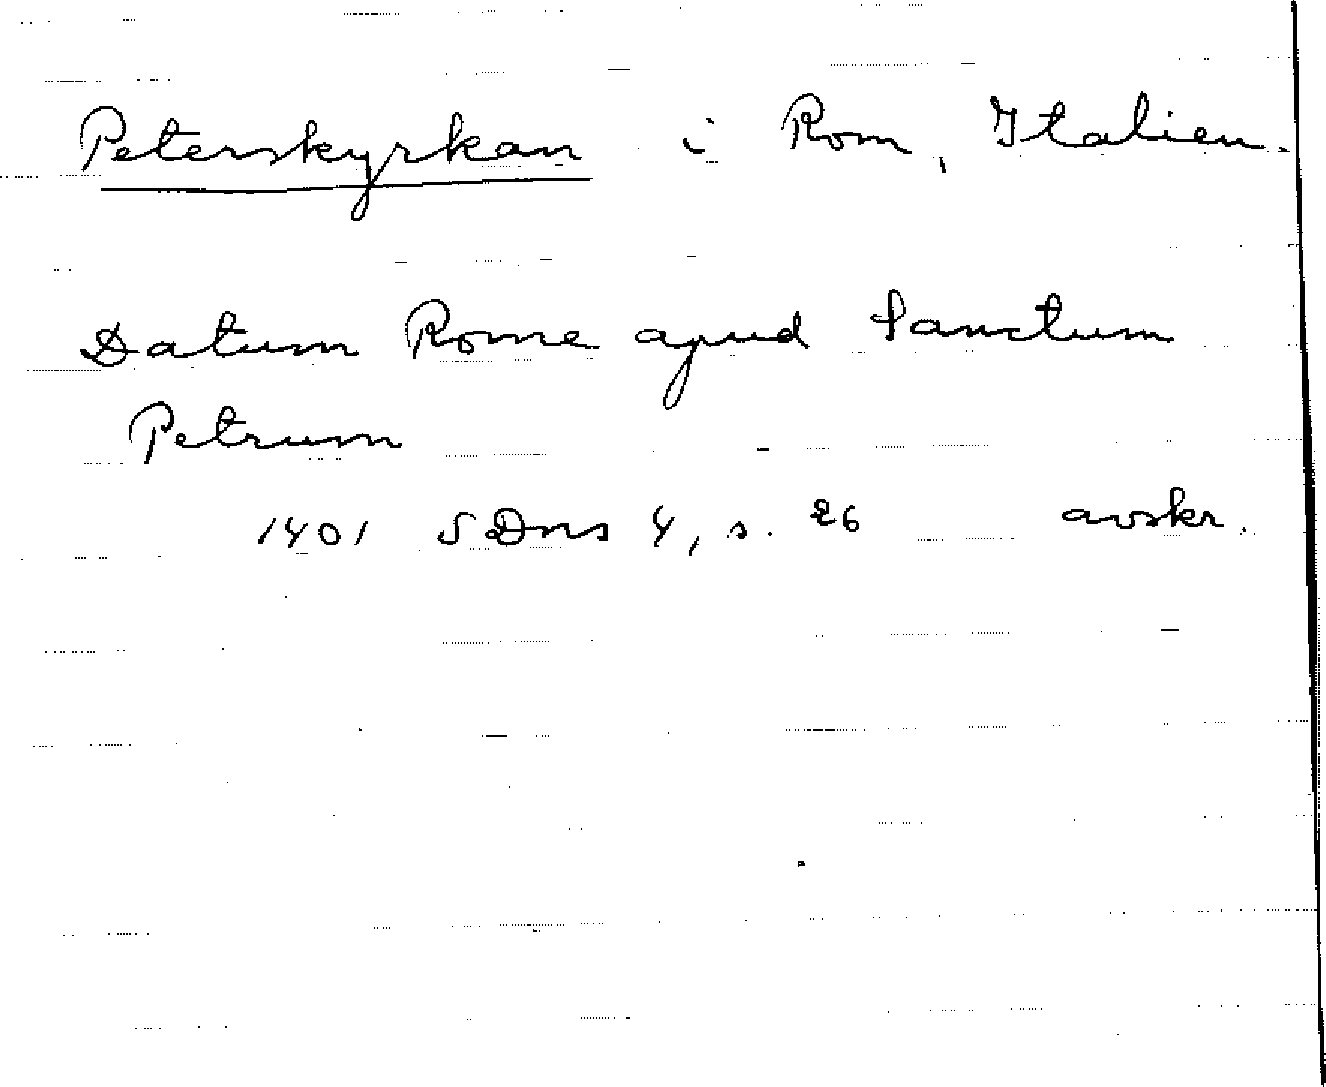 Peterskyrkan i Rom, Italien.
Datum Rome apud Sanctum
Petrum
1401 SDns 4, s. 26 avskr.